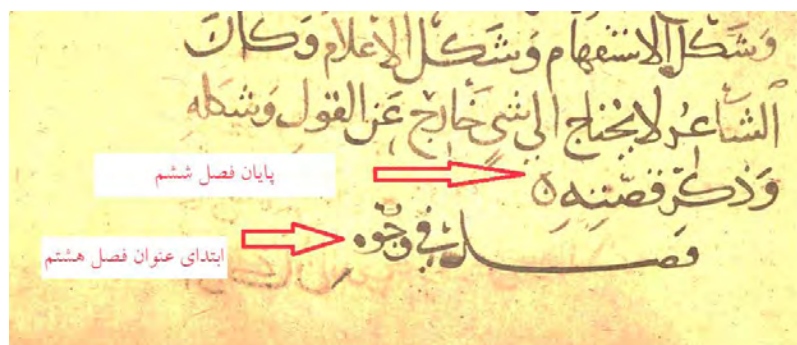 وَشَكل الاستفهام وَشَكل الاعلام وَكانَ
الشاعرُ لا يحتاج الى شي خَارج عَن القول وَشكله
پایان فصل ششم
وَذكر قصّته ه
فصل في وجُوه
ابتدای عنوان فصل هشتم